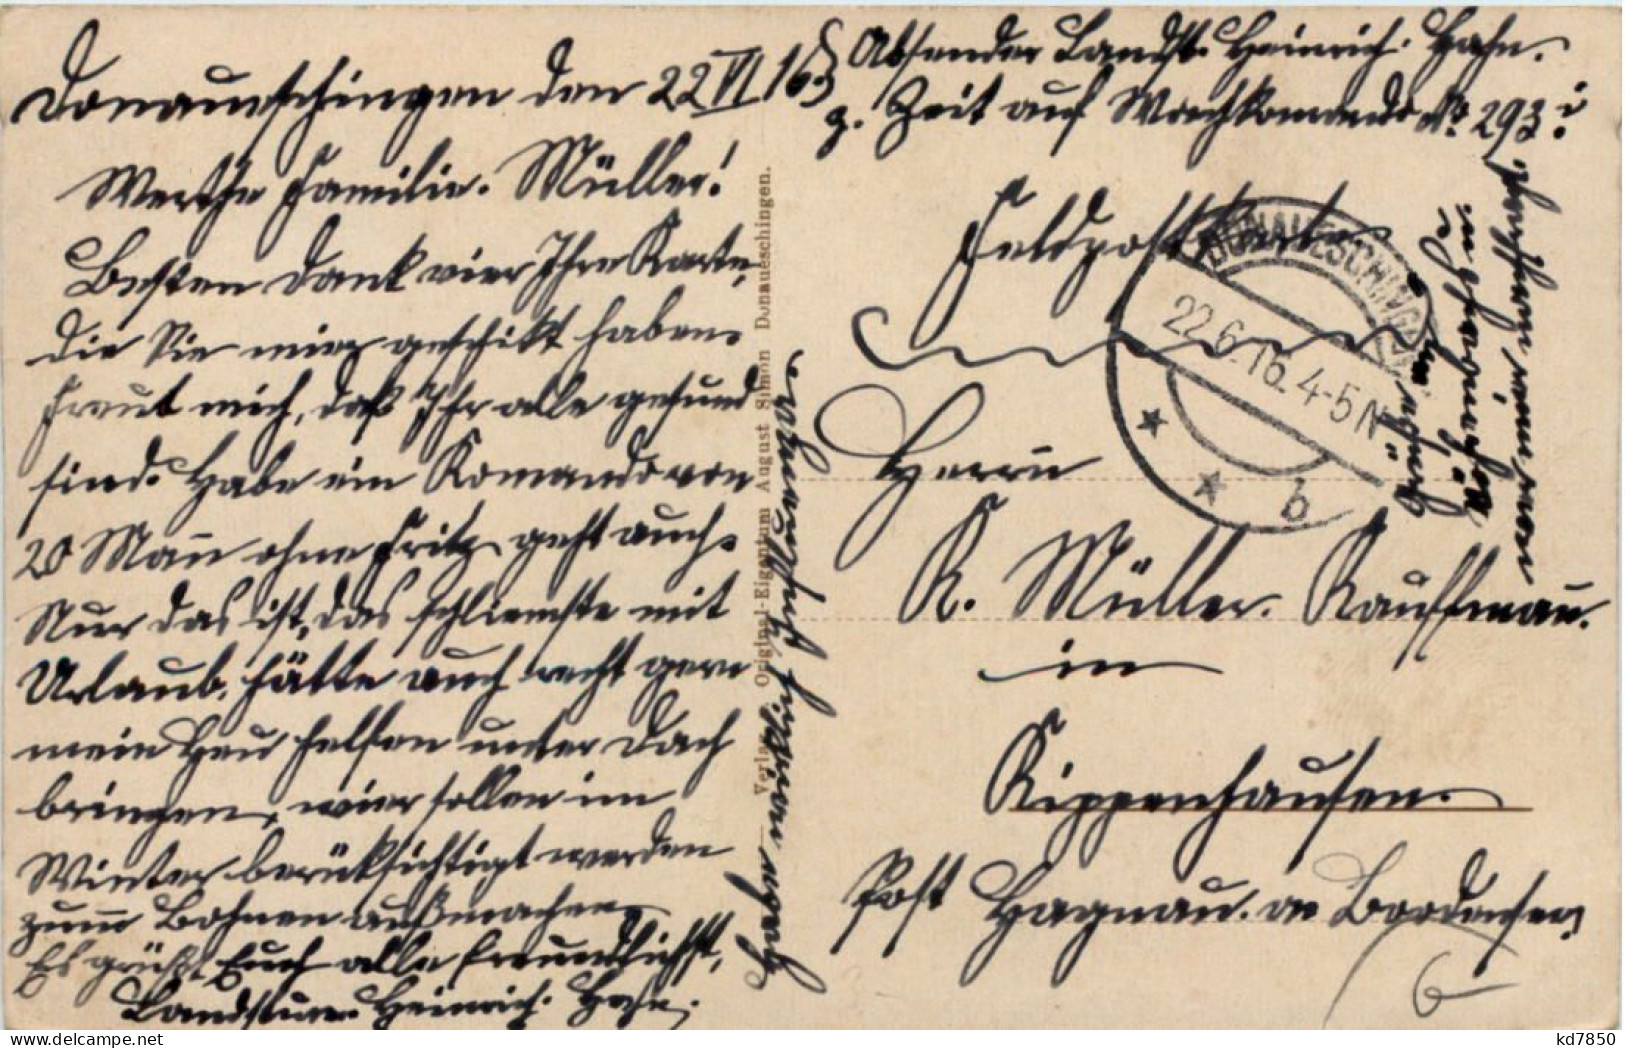 Donaueschingen den 22 VI 16
Werthe Familie. Müller!
Besten Dank vier Ihre Karte,
die Sie mier geschikt haben.
Freut mich, daß Ihr alle gesund
sind. Habe ein Komando von
20 Mann ohne Fritz geht auch.
Nur das ist, das schliemste mit
Urlaub, hätte auch recht gern
mein Heu helfen unter Dach
bringen, wier sollen im
Winter berüksichtigt werden
zum Bohnen außmachen
Es grüßt Euch alle freundlichst,
Landsturm Heinrich. Hahn.
Verlag Original-Eigentum August Simon Donaueschingen.
Absender Landst. Heinrich. Hahn.
z. Zeit auf Wachkomando No 293
Feldpostkarte
DONAUESCHINGEN
22.6.16. 4-5 N
b
Herrn
K. Müller. Kauffmann.
in
Kippenhausen.
Post Hagnau. am Boodensee
6
kd7850